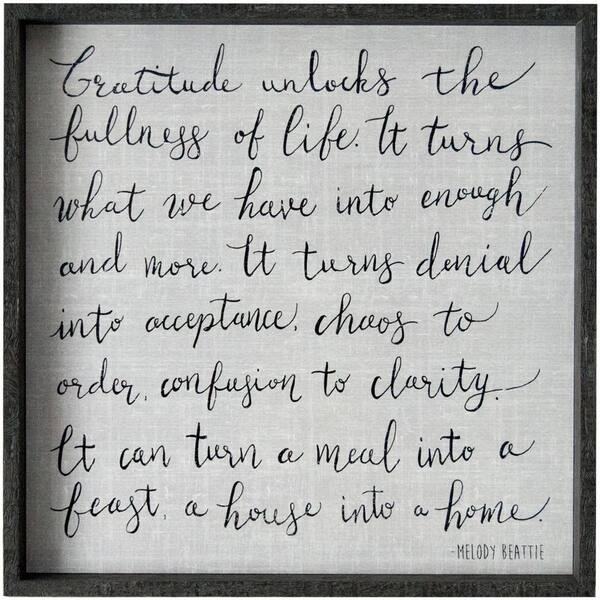 Gratitude unlocks the
fullness of life. It turns
what we have into enough
and more. It turns denial
into acceptance, chaos to
order, confusion to clarity.
It can turn a meal into a
feast, a house into a home.
-MELODY BEATTIE